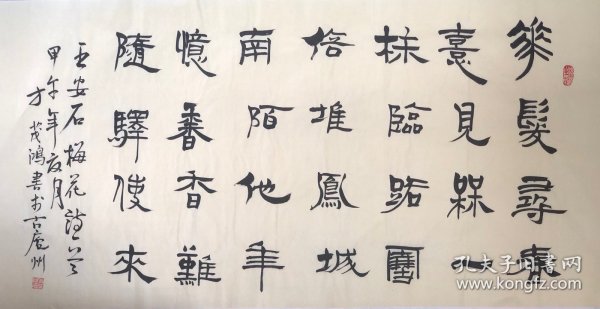 華髮尋春
喜見槑一
株臨路雪
倍堆鳳城
南陌他年
憶香杳難
隨驛使來
王安石梅花詩一首
甲午年夏月
方茂鴻書於古廬州
孔夫子旧书网
www.kongfz.com